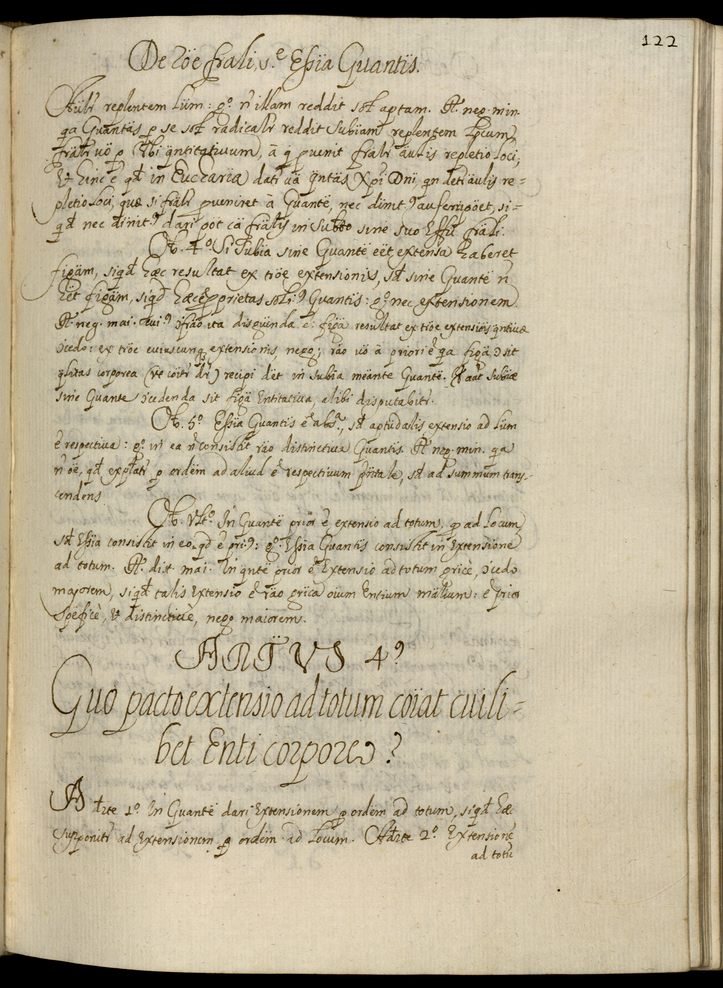 122
De rōe frali, s.e Eßia Quantis.
replentem lūm: gº. n̄ illam reddit aptam. R. neg. min.
qa Quantas p se radicalr reddit Subiam replentem Locum,
frālr vō p Vbi qntitativum, ā q puenit fralr āulis repletio Loci,
Et hinc ē qđ in Eucharia datr vā qntās Xpi Dni, qn detr āulis re=
pletio Loci, quæ si frālr pveniret ā Quante, nec dinit9 auferri pōet, si=
qđ nec dinit9 dari pōt cā frālis in Subto sine suo Effū frāli.
Ob. 4º. Si Subia sine Quante ēet extensa haberet
figām, siqđ hæc resultat ex rōe extensionis, sđ sine Quante n̄
hēt figām, siqđ hæc ē pprietas Quantis: gº. nec extensionem
R. neg. mai. ita disguenda ē: figā resultat ex rōe extensiōis qntivæ
ɔcedo: ex rōe cuiuscunq extensionis nego; rāo vō ā priori ē qa figā ɔsit
qlitas corporea (vt cōitr dr) recipi dēt in subia meante Quante. subiæ
sine Quante ɔcedenda sit figā Entitativa, alibi disputabitr.
Ob. 5º. Eßia Quantis ē absª., sđ aptūdalis extensio ad lūm
ē respectiva: gº. in ea n̄ consistit rāo distinctiva Quantis. R. neg. min. qa
n̄ ōe, qđ explatr p ordem ad aliud ē respectivum pntale, sđ ad summum trans=
cendens
Ob. Vltº. In Quante prior ē extensio ad totum, q̄ ad Locum,
sđ Eßia consistit in eo, qđ ē pri9: gº. Eßia Quantis consistit in Extensione
ad totum. R. dist. mai. In qnte prior ē Extensio ad totum gricè, ɔcedo
maiorem, siqđ talis Extensio ē rāo grica oium Entium mālium: ē prior
Spēficè, & distinctivè, nego maiorem.
ARTVS 4º
Quo pacto extensio ad totum cōiat cuili=
bet Enti corporeo?
Adrte 1º. In Quante dari Extensionem p ordem ad totum, siqđ hæc
Supponitr ad Extensionem p ordem ad Locum. Adrte 2º. Extensione
ad totū